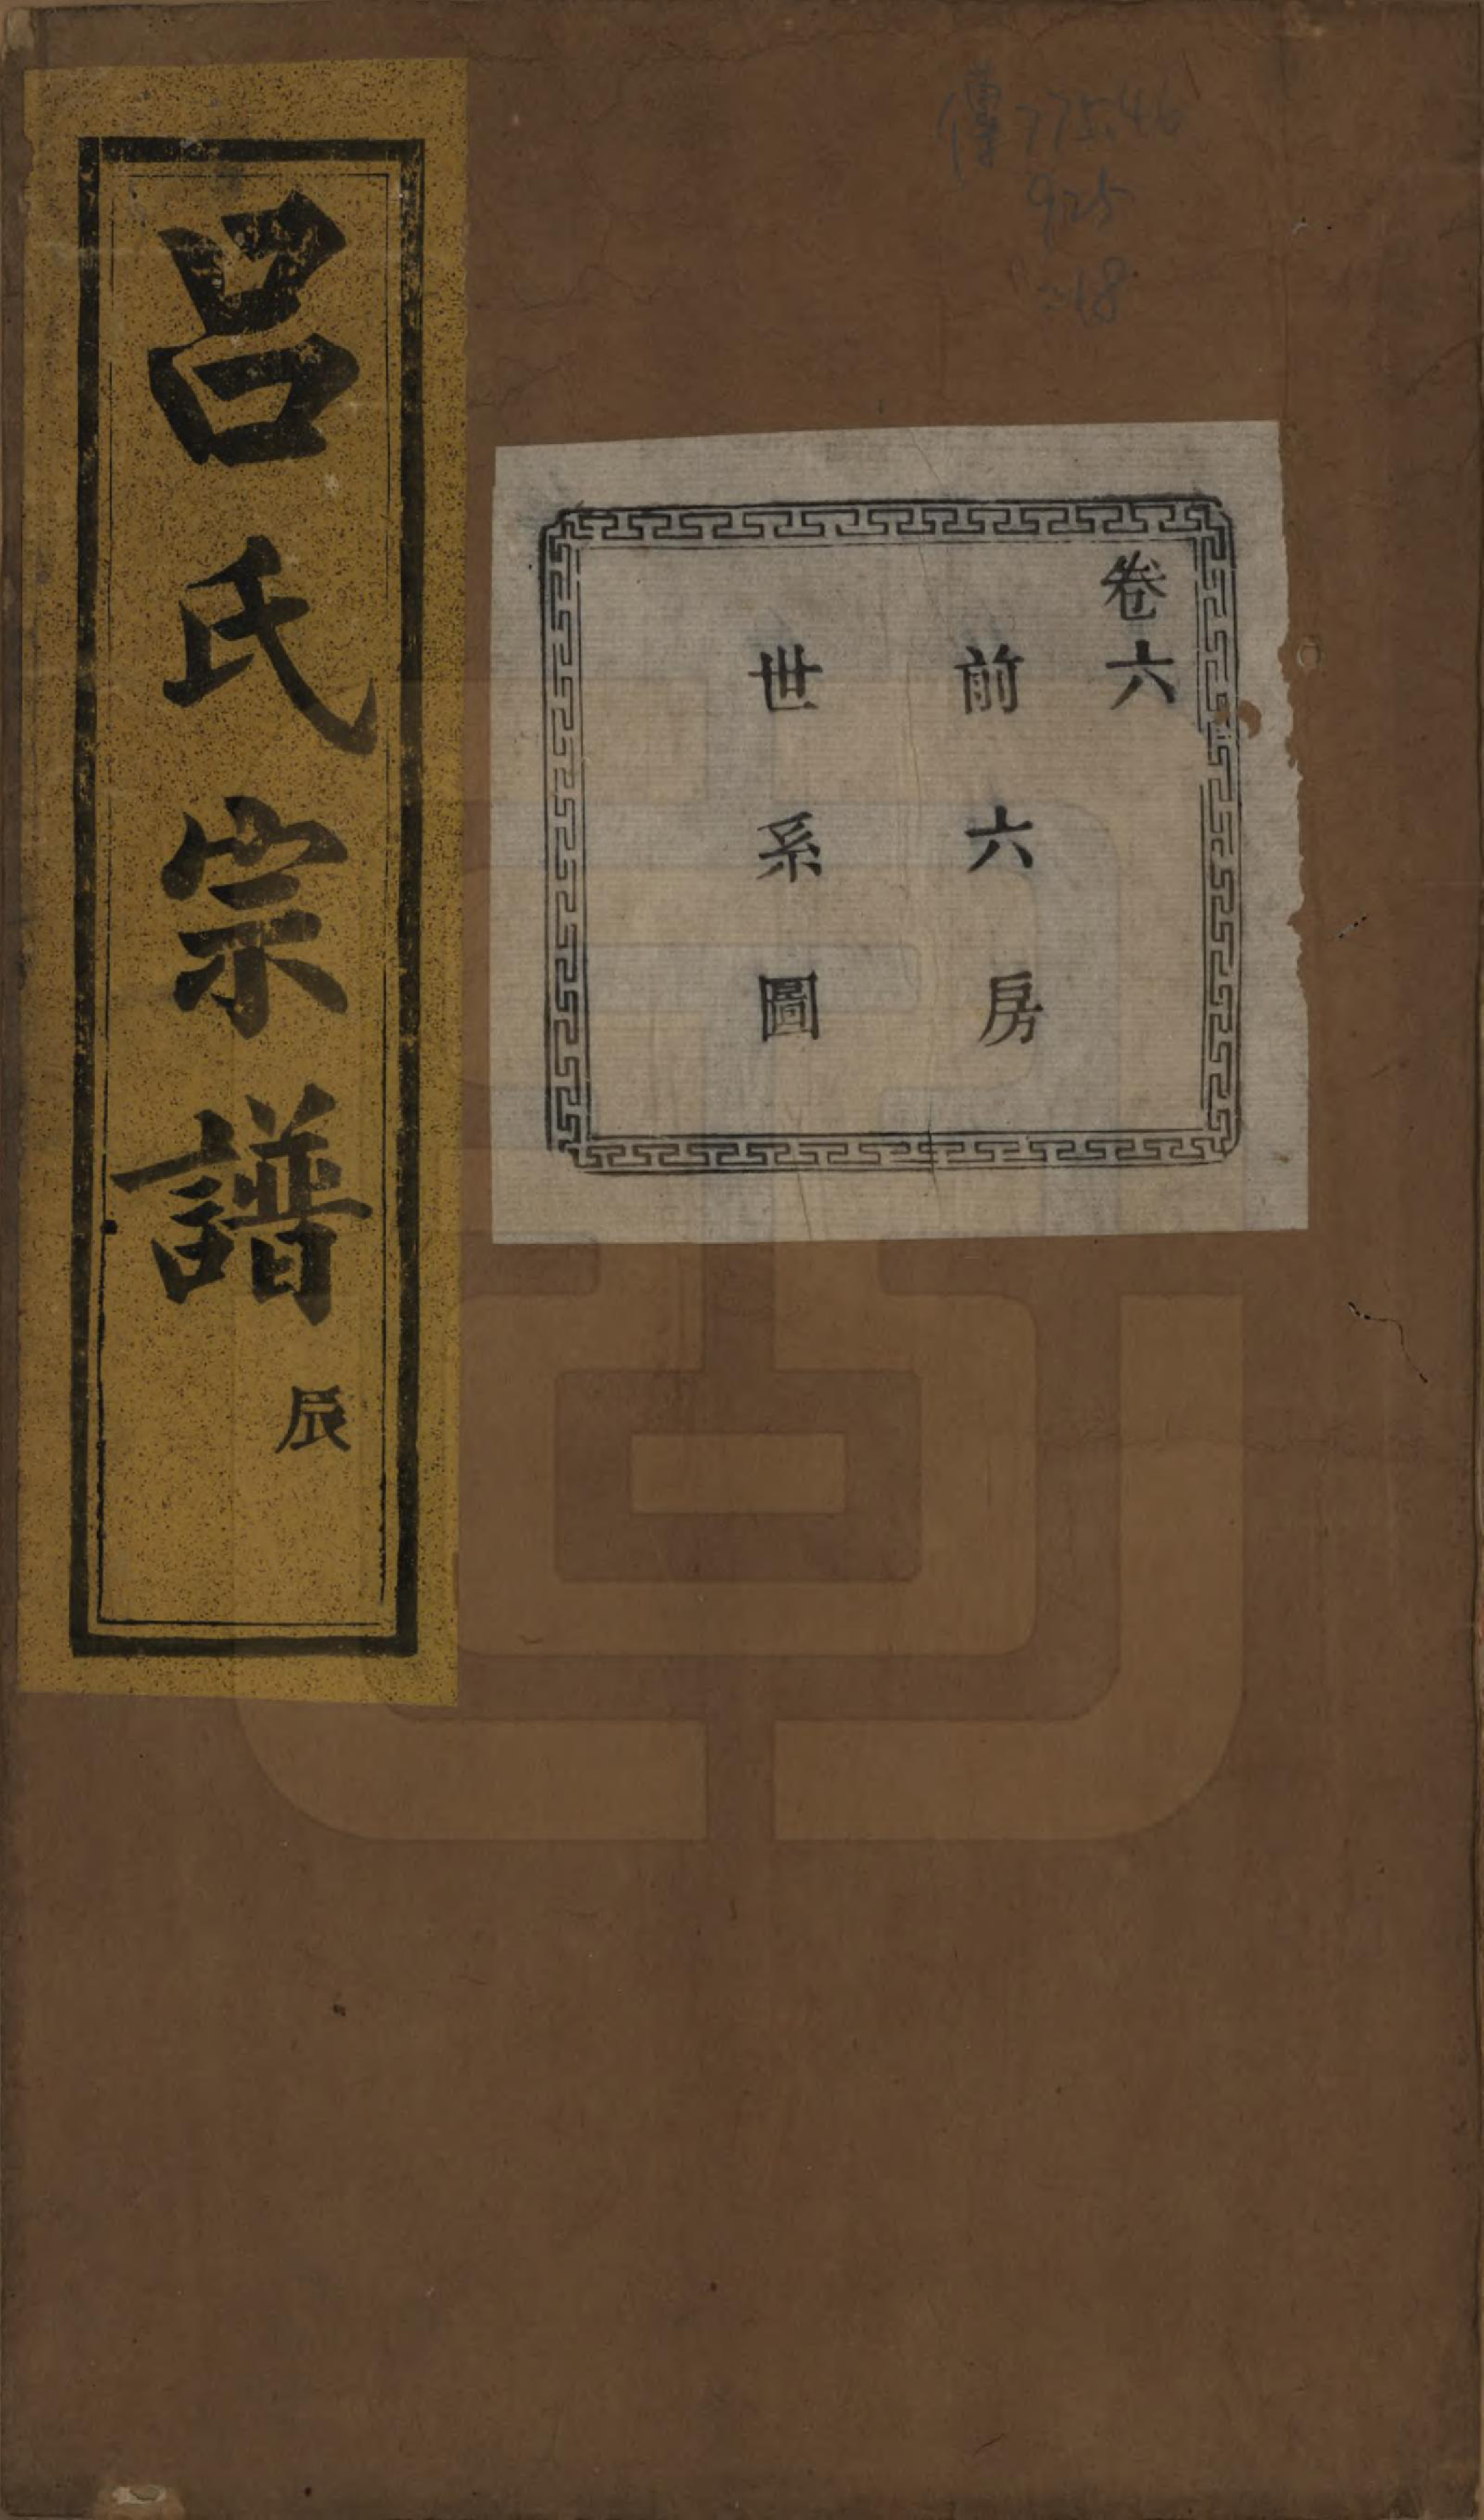 傳775.46
925
:18
卷六
前六房
世系圖
呂氏宗譜
辰